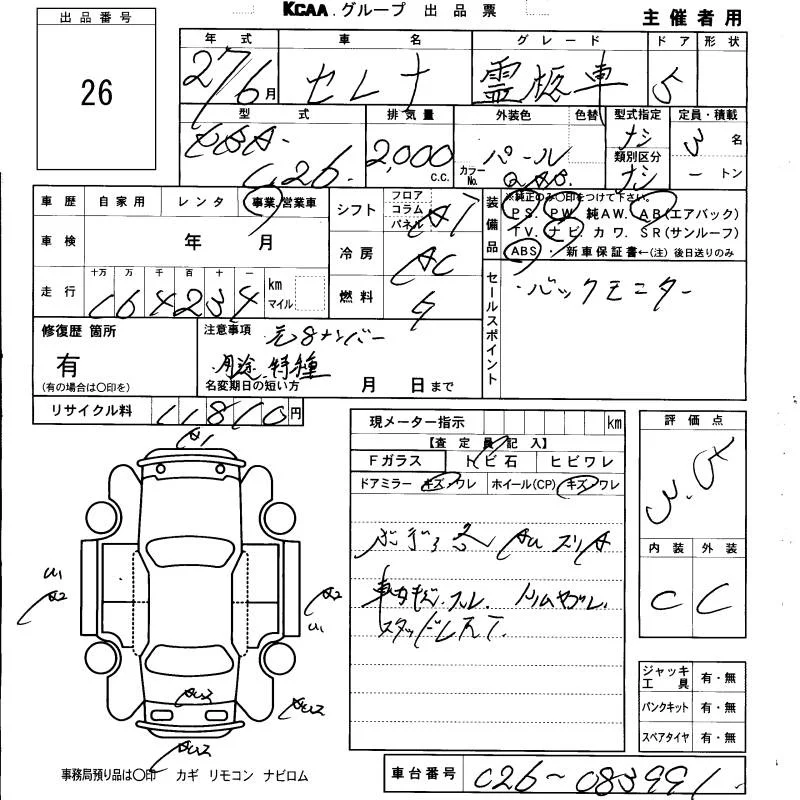 KCAA.グループ 出品票
主催者用
出品番号
26
年式 車名 グレード ドア 形状
27/6月 セレナ 霊柩車 5
型式 排気量 外装色 色替 型式指定 定員・積載
ナシ 3名
DBA- 2,000 c.c. パール 類別区分
C26 カラーNo. QAB ナシ ートン
車歴 自家用 レンタ 事業.営業車
シフト フロア コラム パネル AT
装備品 ※純正のみ○印をつけて下さい。
PS. PW. 純AW. AB(エアバック)
TV. ナビ. カワ. SR(サンルーフ)
ABS ・ 新車保証書←(注) 後日送りのみ
車検 年 月
冷房 AC
走行 十万 万 千 百 十 一 km マイル
164234
燃料 ガ
セールスポイント
・バックモニター
修復歴 箇所
有
(有の場合は○印を)
注意事項 元8ナンバー
用途.特種
名変期日の短い方 月 日まで
リサイクル料 11810円
現メーター指示 km
【査定員記入】
Fガラス トビ石 ヒビワレ
ドアミラー キズ.ワレ ホイール(CP) キズ.ワレ
評価点
内装 外装
C C
A1
U1
A2
A2
U1
スタッドレス
ジャッキ工具 有・無
パンクキット 有・無
スペアタイヤ 有・無
事務局預り品は○印 カギ リモコン ナビロム
車台番号 C26-083991